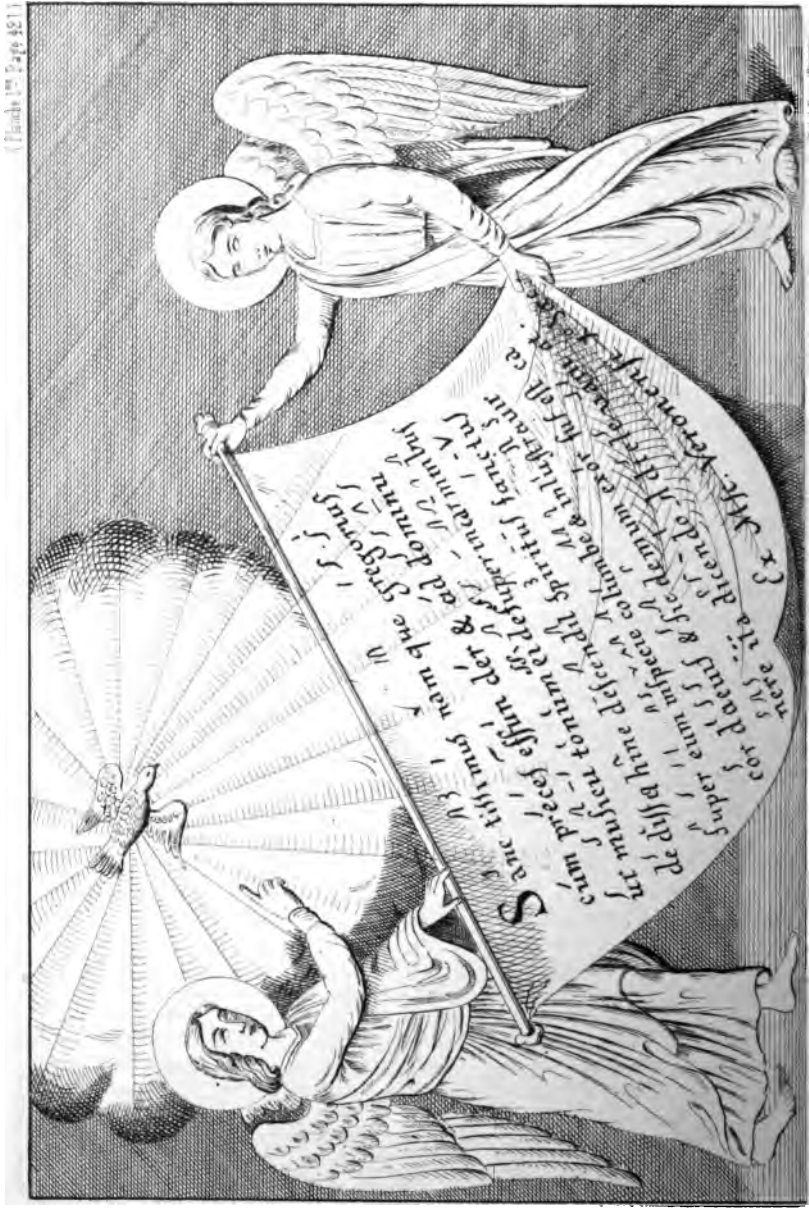 (Planche 1re Page 421)
Sanc tissimus nam que gregorius
cum preces effun der & ad dominu
ut musicu tonum ei desuper incarminibus
descendit spiritus sanctus
super eum inspecie columbe & inlustravit
cor daeius & sic demum exor sus est ca
nere ita dicendo Ad te levavi
Ex Msc. Veronense